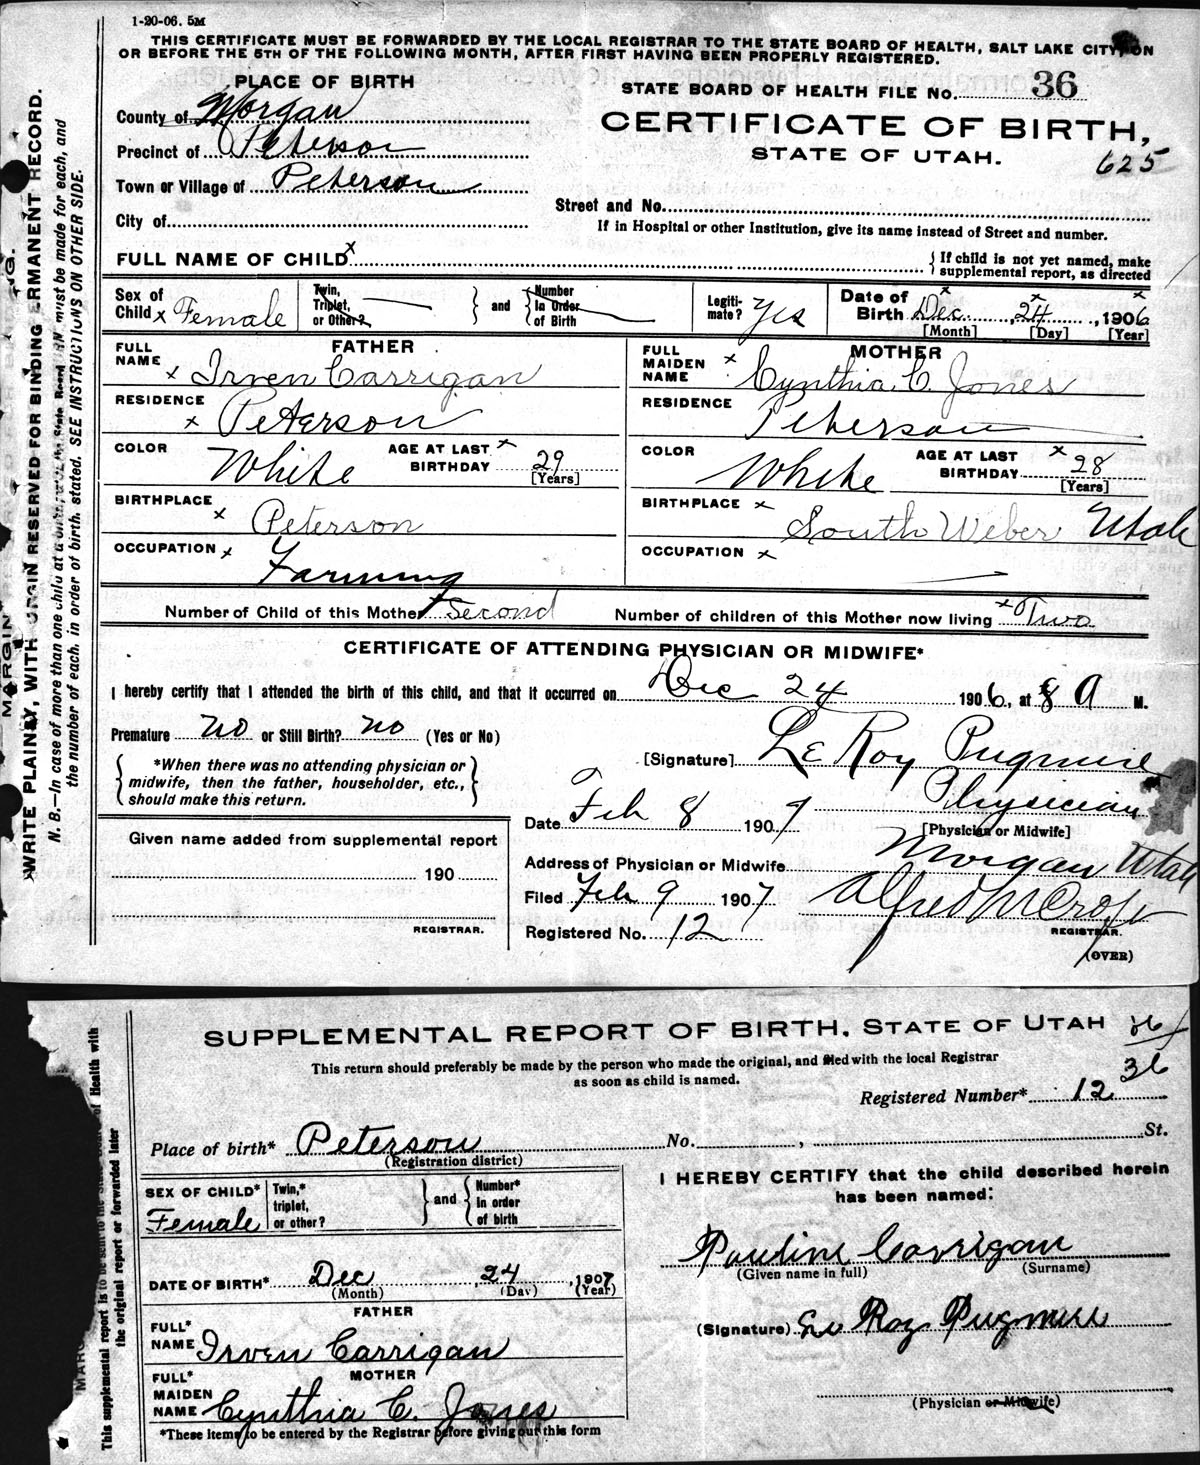 1-20-06. 5M
THIS CERTIFICATE MUST BE FORWARDED BY THE LOCAL REGISTRAR TO THE STATE BOARD OF HEALTH, SALT LAKE CITY, ON
OR BEFORE THE 5TH OF THE FOLLOWING MONTH, AFTER FIRST HAVING BEEN PROPERLY REGISTERED.
PLACE OF BIRTH
STATE BOARD OF HEALTH FILE No. 36
County of Morgan
CERTIFICATE OF BIRTH,
Precinct of Peterson
STATE OF UTAH.
625
Town or Village of Peterson
Street and No.
City of
If in Hospital or other Institution, give its name instead of Street and number.
FULL NAME OF CHILD x
{ If child is not yet named, make
supplemental report, as directed
Sex of Child x Female
Twin, Triplet, or Other?
and
Number in Order of Birth
Legiti-mate? Yes
Date of Birth Dec. 24, 1906
[Month] [Day] [Year]
FATHER
MOTHER
FULL NAME x Irven Carrigan
FULL MAIDEN NAME x Cynthia C. Jones
RESIDENCE x Peterson
RESIDENCE Peterson
COLOR White
AGE AT LAST BIRTHDAY x 29 [Years]
COLOR White
AGE AT LAST BIRTHDAY x 28 [Years]
BIRTHPLACE x Peterson
BIRTHPLACE x South Weber Utah
OCCUPATION x Farming
OCCUPATION x
Number of Child of this Mother x Second
Number of children of this Mother now living x Two
CERTIFICATE OF ATTENDING PHYSICIAN OR MIDWIFE*
I hereby certify that I attended the birth of this child, and that it occurred on Dec 24 1906, at 8 A M.
Premature no or Still Birth? no (Yes or No)
[Signature] Le Roy Pugmire
*When there was no attending physician or
midwife, then the father, householder, etc.,
should make this return.
Physician
[Physician or Midwife]
Date Feb 8 1907
Given name added from supplemental report
190
REGISTRAR.
Address of Physician or Midwife Morgan Utah
Filed Feb 9 1907
Alfred W Croft
REGISTRAR.
Registered No. 12
(OVER)
WRITE PLAINLY, WITH VIRGIN RESERVED FOR BINDING ERMANENT RECORD.
N. B.—In case of more than one child at a must be made for each, and
the number of each, in order of birth, stated. SEE INSTRUCTIONS ON OTHER SIDE.
SUPPLEMENTAL REPORT OF BIRTH. STATE OF UTAH
36
This return should preferably be made by the person who made the original, and filed with the local Registrar
as soon as child is named.
Registered Number* 12
Place of birth* Peterson No. , St.
(Registration district)
SEX OF CHILD* Female
Twin,* triplet, or other?
and
Number* in order of birth
I HEREBY CERTIFY that the child described herein
has been named:
Pauline Carrigan
(Given name in full) (Surname)
DATE OF BIRTH* Dec 24, 1907
(Month) (Day) (Year)
FATHER
FULL* NAME Irven Carrigan
(Signature) Le Roy Pugmire
MOTHER
FULL* MAIDEN NAME Cynthia C. Jones
(Physician or Midwife)
*These items to be entered by the Registrar before giving out this form
This supplemental report is to be sent to the State Board of Health with
the original report or forwarded later